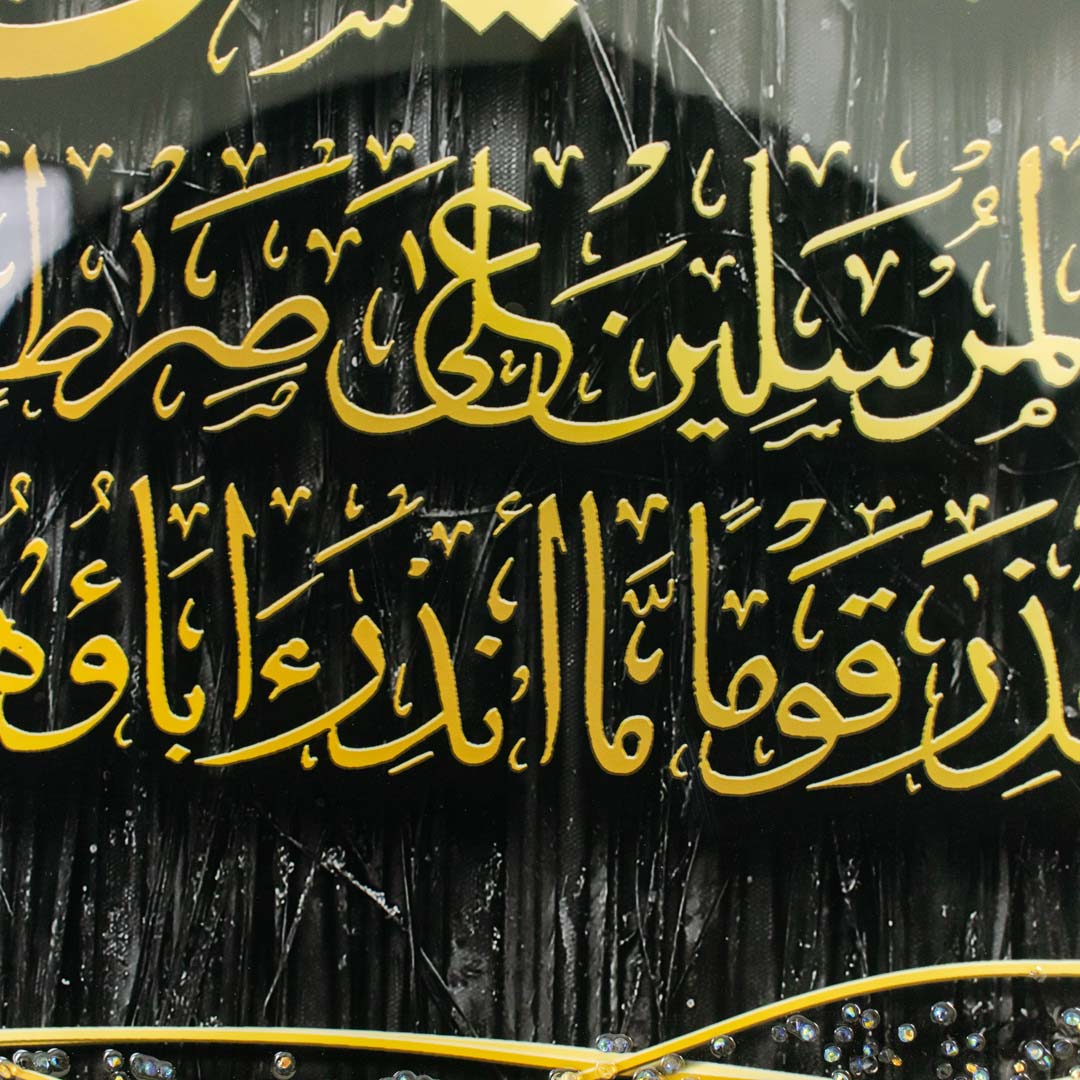 لمُرْسَلِينَ عَلَىٰ صِرَٰطٍ
نذِرَ قَوْمًا مَّا أُنذِرَ ءَابَاؤُهُ